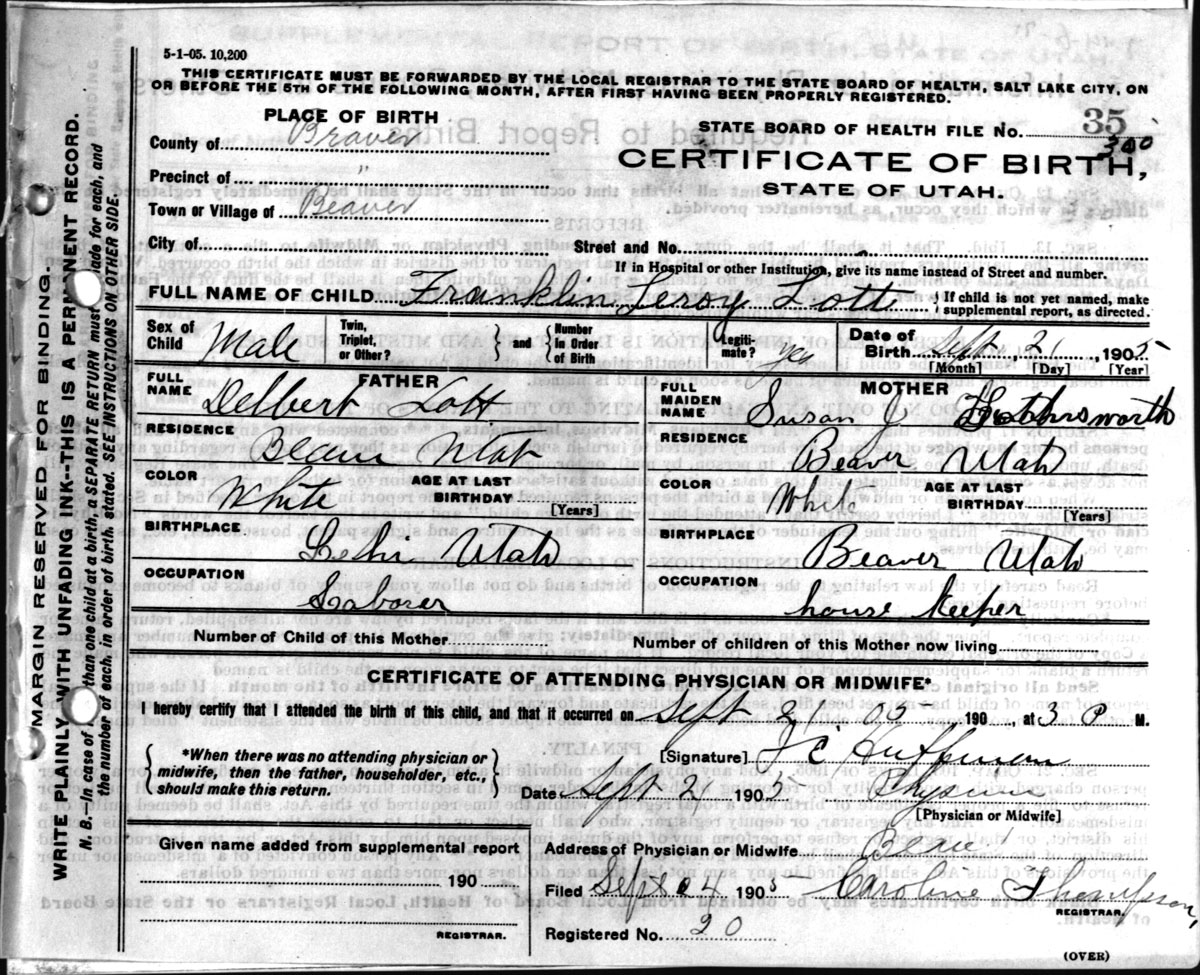 5-1-05. 10,200
THIS CERTIFICATE MUST BE FORWARDED BY THE LOCAL REGISTRAR TO THE STATE BOARD OF HEALTH, SALT LAKE CITY, ON
OR BEFORE THE 5TH OF THE FOLLOWING MONTH, AFTER FIRST HAVING BEEN PROPERLY REGISTERED.
PLACE OF BIRTH
County of Braver
Precinct of "
Town or Village of Beaver
City of
STATE BOARD OF HEALTH FILE No. 35
300
CERTIFICATE OF BIRTH,
STATE OF UTAH.
Street and No.
If in Hospital or other Institution, give its name instead of Street and number.
FULL NAME OF CHILD Franklin Leroy Lott { If child is not yet named, make
supplemental report, as directed.
Sex of Child Male
Twin, Triplet, or Other? } and { Number in Order of Birth
Legiti-mate? yes
Date of Birth Sept 21, 1905
[Month] [Day] [Year]
FATHER
FULL NAME Delbert Lott
RESIDENCE
Beaver Utah
COLOR White AGE AT LAST BIRTHDAY
[Years]
BIRTHPLACE
Lehi Utah
OCCUPATION
Laborer
MOTHER
FULL MAIDEN NAME Susan J
RESIDENCE
Beaver Utah
COLOR White AGE AT LAST BIRTHDAY
[Years]
BIRTHPLACE
Beaver Utah
OCCUPATION
house Keeper
Number of Child of this Mother Number of children of this Mother now living
CERTIFICATE OF ATTENDING PHYSICIAN OR MIDWIFE*
I hereby certify that I attended the birth of this child, and that it occurred on Sept 21 05 190 , at 3 P M.
{ *When there was no attending physician or
midwife, then the father, householder, etc.,
should make this return. }
[Signature] J C Huffman
Date Sept 190
[Physician or Midwife]
Given name added from supplemental report
190
REGISTRAR.
Address of Physician or Midwife
Filed 190 Caroline Thompson,
REGISTRAR.
Registered No. 20
(OVER)
MARGIN RESERVED FOR BINDING.
WRITE PLAINLY WITH UNFADING INK--THIS IS A PERMANENT RECORD.
N. B.-In case of than one child at a birth, a SEPARATE RETURN must made for each, and
the number of each, in order of birth, stated. SEE INSTRUCTIONS ON OTHER SIDE.